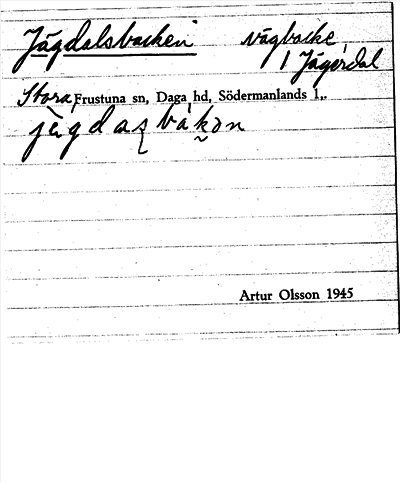 Jägdalsbacken vägbacke,
i Jägerdal
Stora, Frustuna sn, Daga hd, Södermanlands l.
Artur Olsson 1945